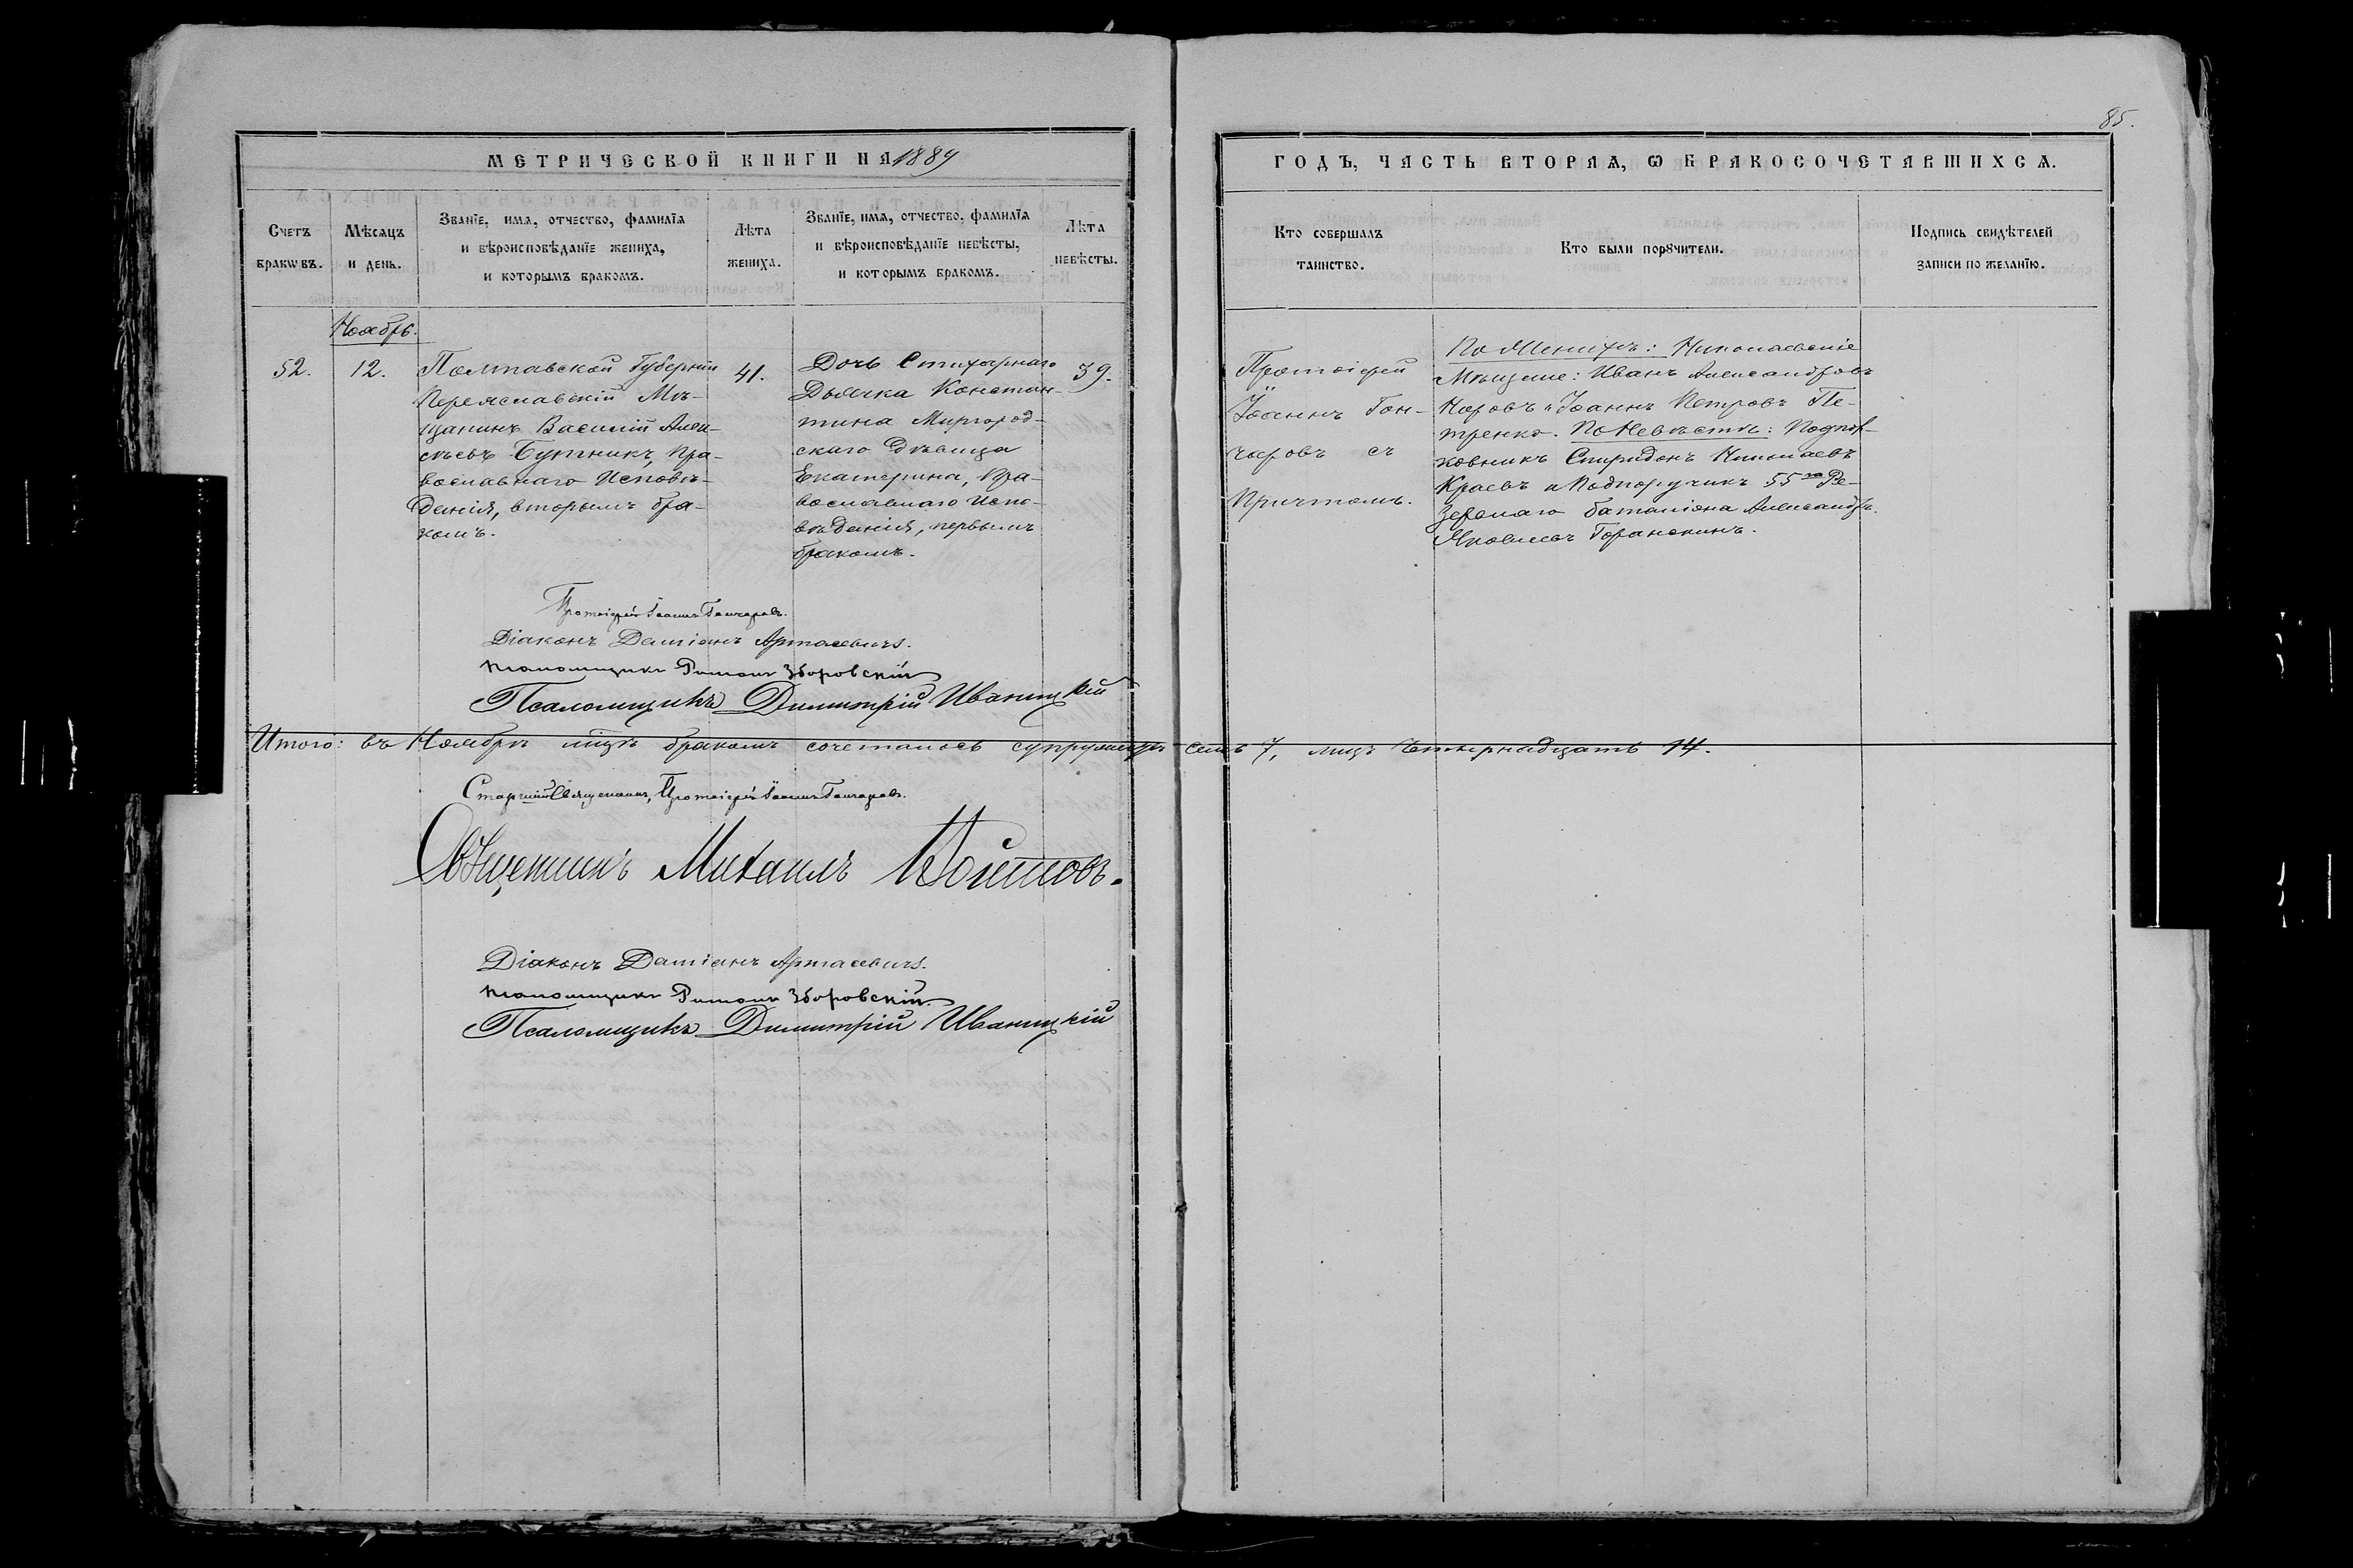 85.
МЕТРИЧЕСКОЙ КНИГИ НА 1889
ГОДЪ, ЧАСТЬ ВТОРАѦ, Ѡ БРАКОСОЧЕТАВШИХСѦ.
Счетъ
бракѡвъ.
Мѣсѧцъ
и день.
Званїе, имѧ, отчество, фамилїѧ
и вѣроисповѣданїе жениха,
и которымъ бракомъ.
Лѣта
жениха.
Званїе, имѧ, отчество, фамилїѧ
и вѣроисповѣданїе невѣсты,
и которымъ бракомъ.
Лѣта
невѣсты.
Кто совершалъ
таинство.
Кто были порꙋчители.
Подпись свидѣтелей
записи по желанїю.
Ноябрь.
52.
12.
Полтавской Губерніи
Переяславскій Мѣ-
щанинъ Василій Алек-
сѣевъ Бутникъ, Пра-
вославнаго Исповѣ-
данія, вторымъ бра-
комъ.
41.
Дочь Стихарнаго
Дьячка Констан-
тина Миргород-
скаго Дѣвица
Екатерина, Пра-
вославнаго Испо-
вѣданія, первымъ
бракомъ.
39.
Протоіерей
Іоаннъ Гон-
чаровъ съ
Причтомъ.
По Женихѣ: Николаевскіе
Мѣщане: Иванъ Александровъ
Наровъ и Іоаннъ Петровъ Пе-
тренко. По Невѣстѣ: Подпол-
ковникъ Спиридонъ Николаевъ
Краевъ и Подпоручикъ 55го Ре-
зервнаго баталіона Александръ
Яковлевъ Горанскинъ.
Протоіерей Іоаннъ Гончаровъ.
Діаконъ Даміанъ Артасевичъ.
Псаломщикъ Зборовскій
Псаломщикъ Димитрій Иваницкій
Итого: въ Ноябрѣ мцѣ бракомъ сочеталось супружествъ семь 7, лицъ четырнадцать 14.
Старшій Священникъ, Протоіерей Іоаннъ Гончаровъ.
Священникъ Михаилъ
Діаконъ Даміанъ Артасевичъ.
Псаломщикъ Зборовскій.
Псаломщикъ Димитрій Иваницкій